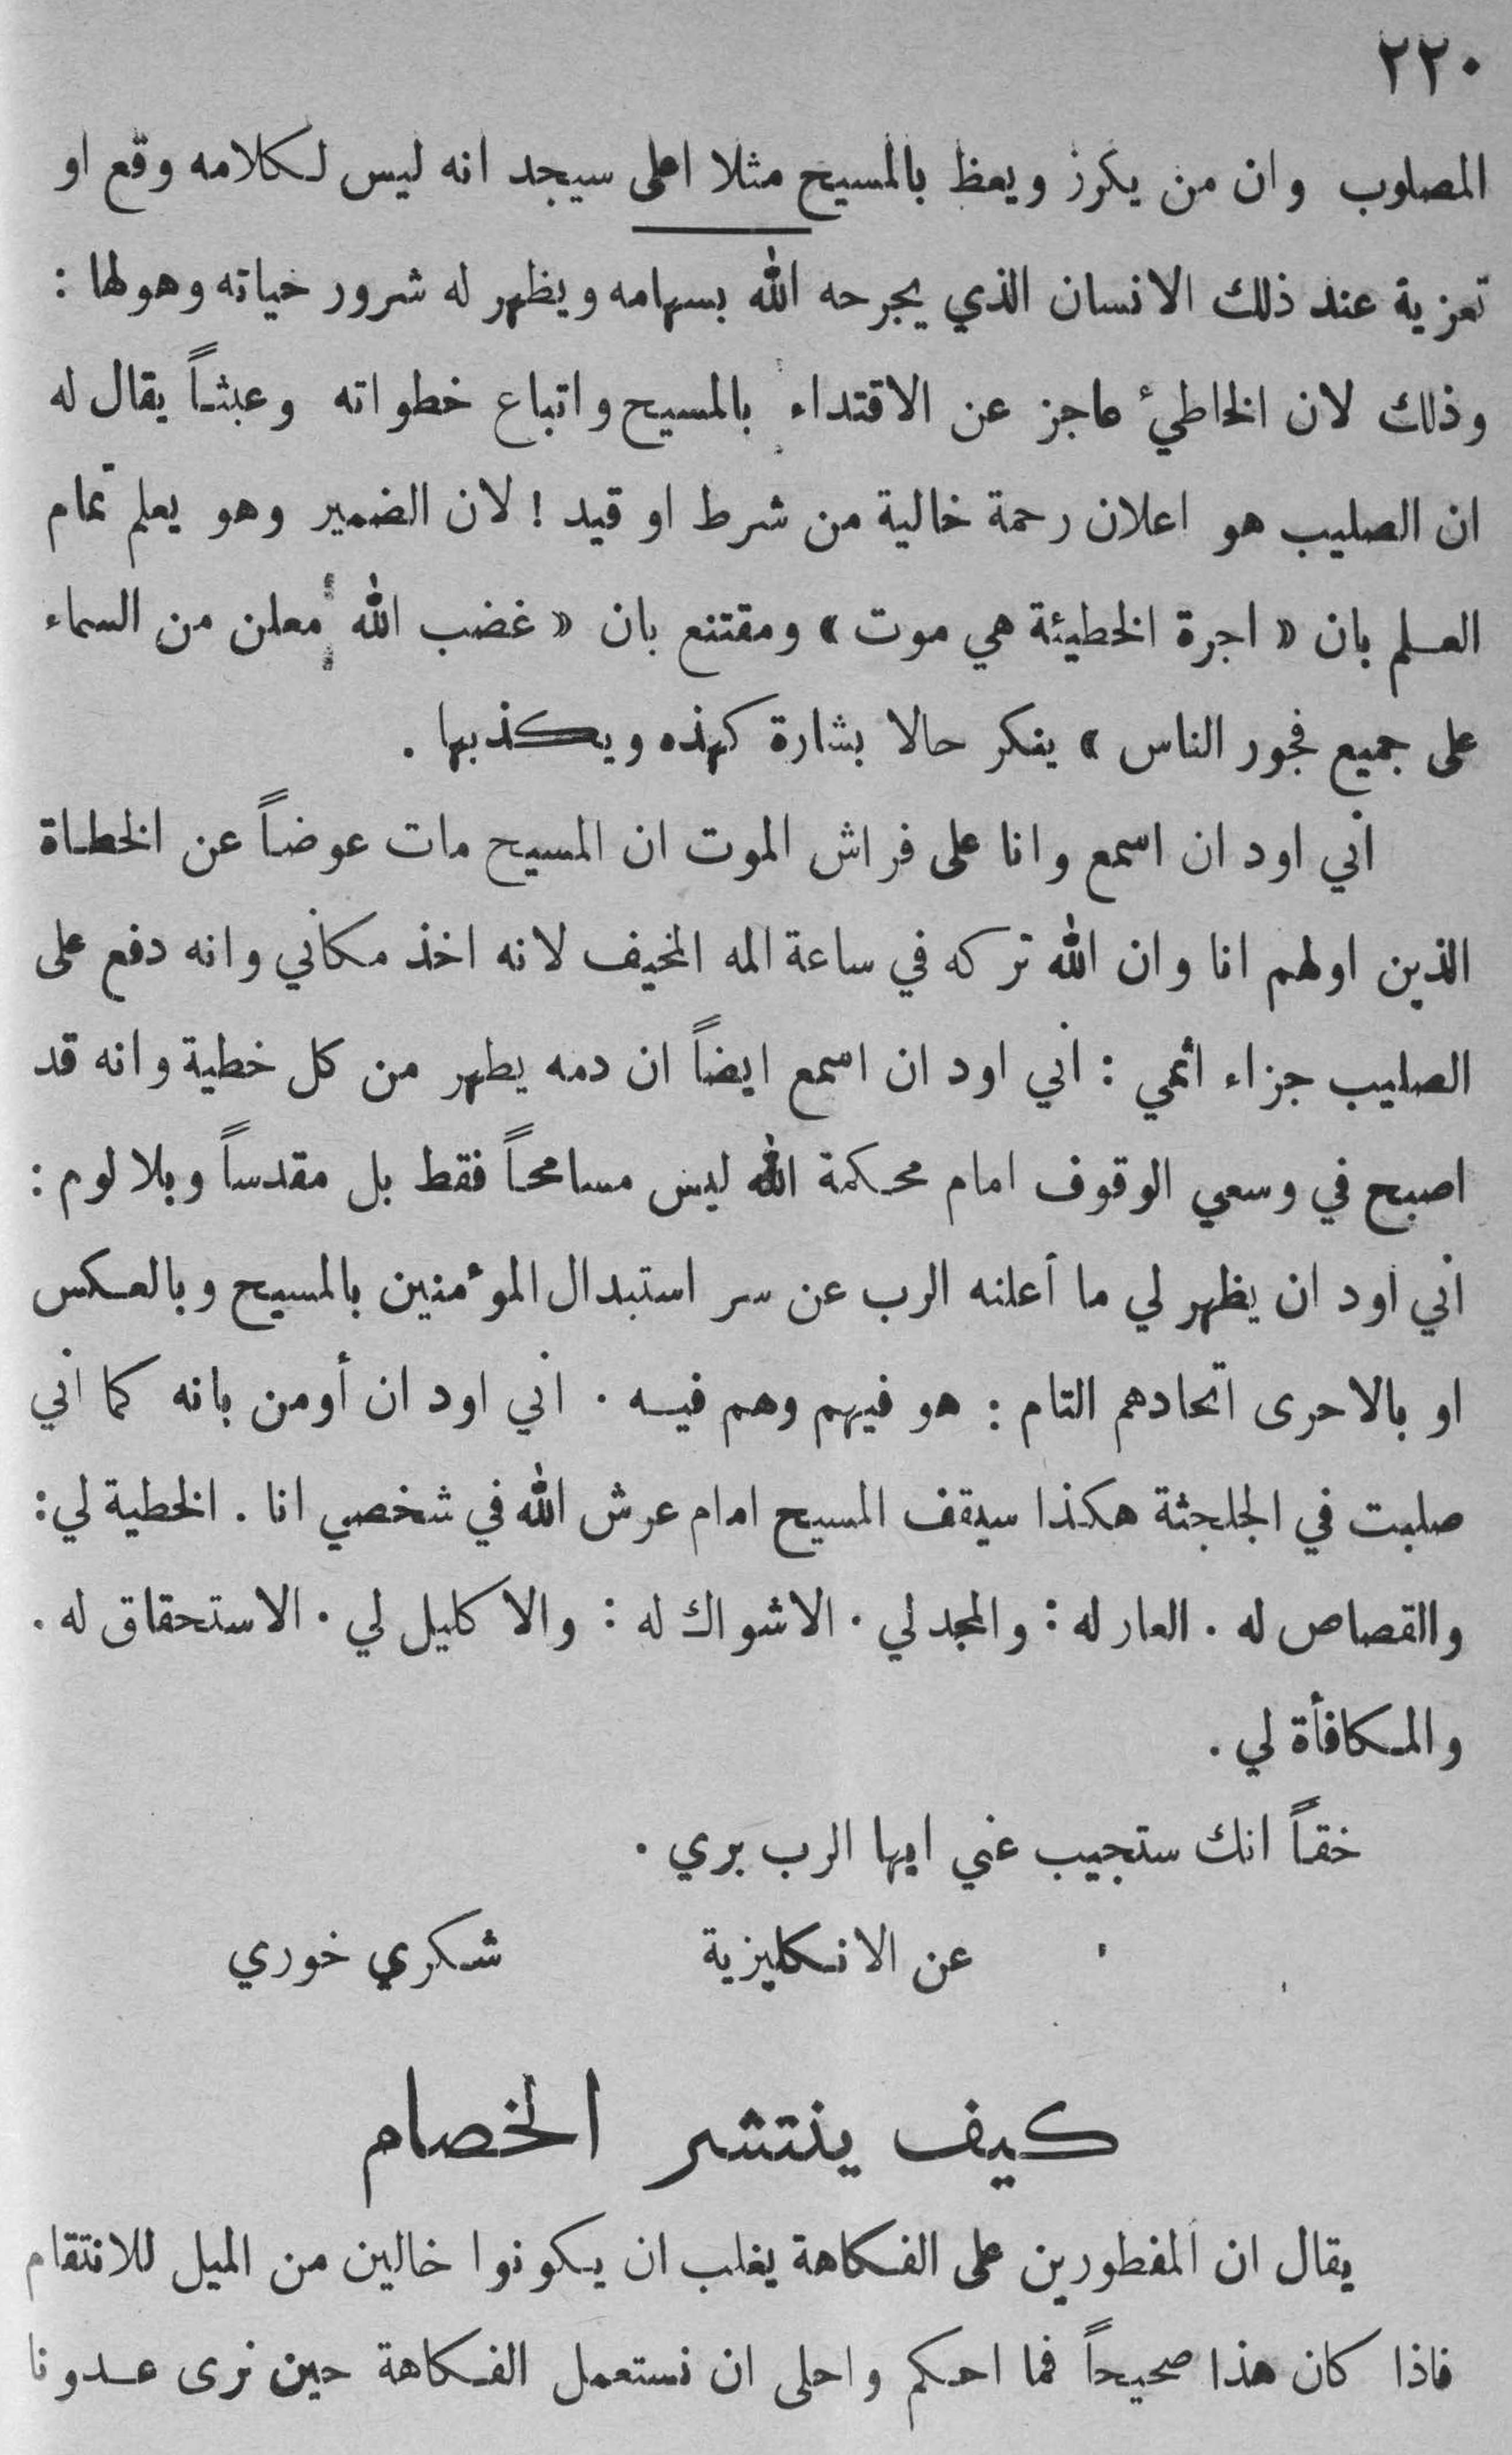 ٢٢٠
المصلوب وان من يكرز ويعظ بالمسيح مثلا اعلى سيجد انه ليس لكلامه وقع او
تعزية عند ذلك الانسان الذي يجرحه الله بسهامه ويظهر له شرور حياته وهولها :
وذلك لان الخاطئ عاجز عن الاقتداء بالمسيح واتباع خطواته وعبثاً يقال له
ان الصليب هو اعلان رحمة خالية من شرط او قيد ! لان الضمير وهو يعلم تمام
العلم بان « اجرة الخطيئة هي موت » ومقتنع بان « غضب الله معلن من السماء
على جميع فجور الناس » ينكر حالا بشارة كهذه ويكذبها .
اني اود ان اسمع وانا على فراش الموت ان المسيح مات عوضاً عن الخطاة
الذين اولهم انا وان الله تركه في ساعة المه المخيف لانه اخذ مكاني وانه دفع على
الصليب جزاء أثمي : اني اود ان اسمع ايضاً ان دمه يطهر من كل خطية وانه قد
اصبح في وسعي الوقوف امام محكمة الله ليس مسامحاً فقط بل مقدساً وبلا لوم :
اني اود ان يظهر لي ما أعلنه الرب عن سر استبدال المؤمنين بالمسيح وبالعكس
او بالاحرى اتحادهم التام : هو فيهم وهم فيه . اني اود ان أومن بانه كما اني
صلبت في الجلجثة هكذا سيقف المسيح امام عرش الله في شخصي انا . الخطية لي :
والقصاص له . العار له : والمجد لي . الاشواك له : والاكليل لي . الاستحقاق له .
والمكافأة لي .
حقاً انك ستجيب عني ايها الرب بري .
عن الانكليزية شكري خوري
كيف ينتشر الخصام
يقال ان المفطورين على الفكاهة يغلب ان يكونوا خالين من الميل للانتقام
فاذا كان هذا صحيحاً فما احكم واحلى ان نستعمل الفكاهة حين نرى عدونا